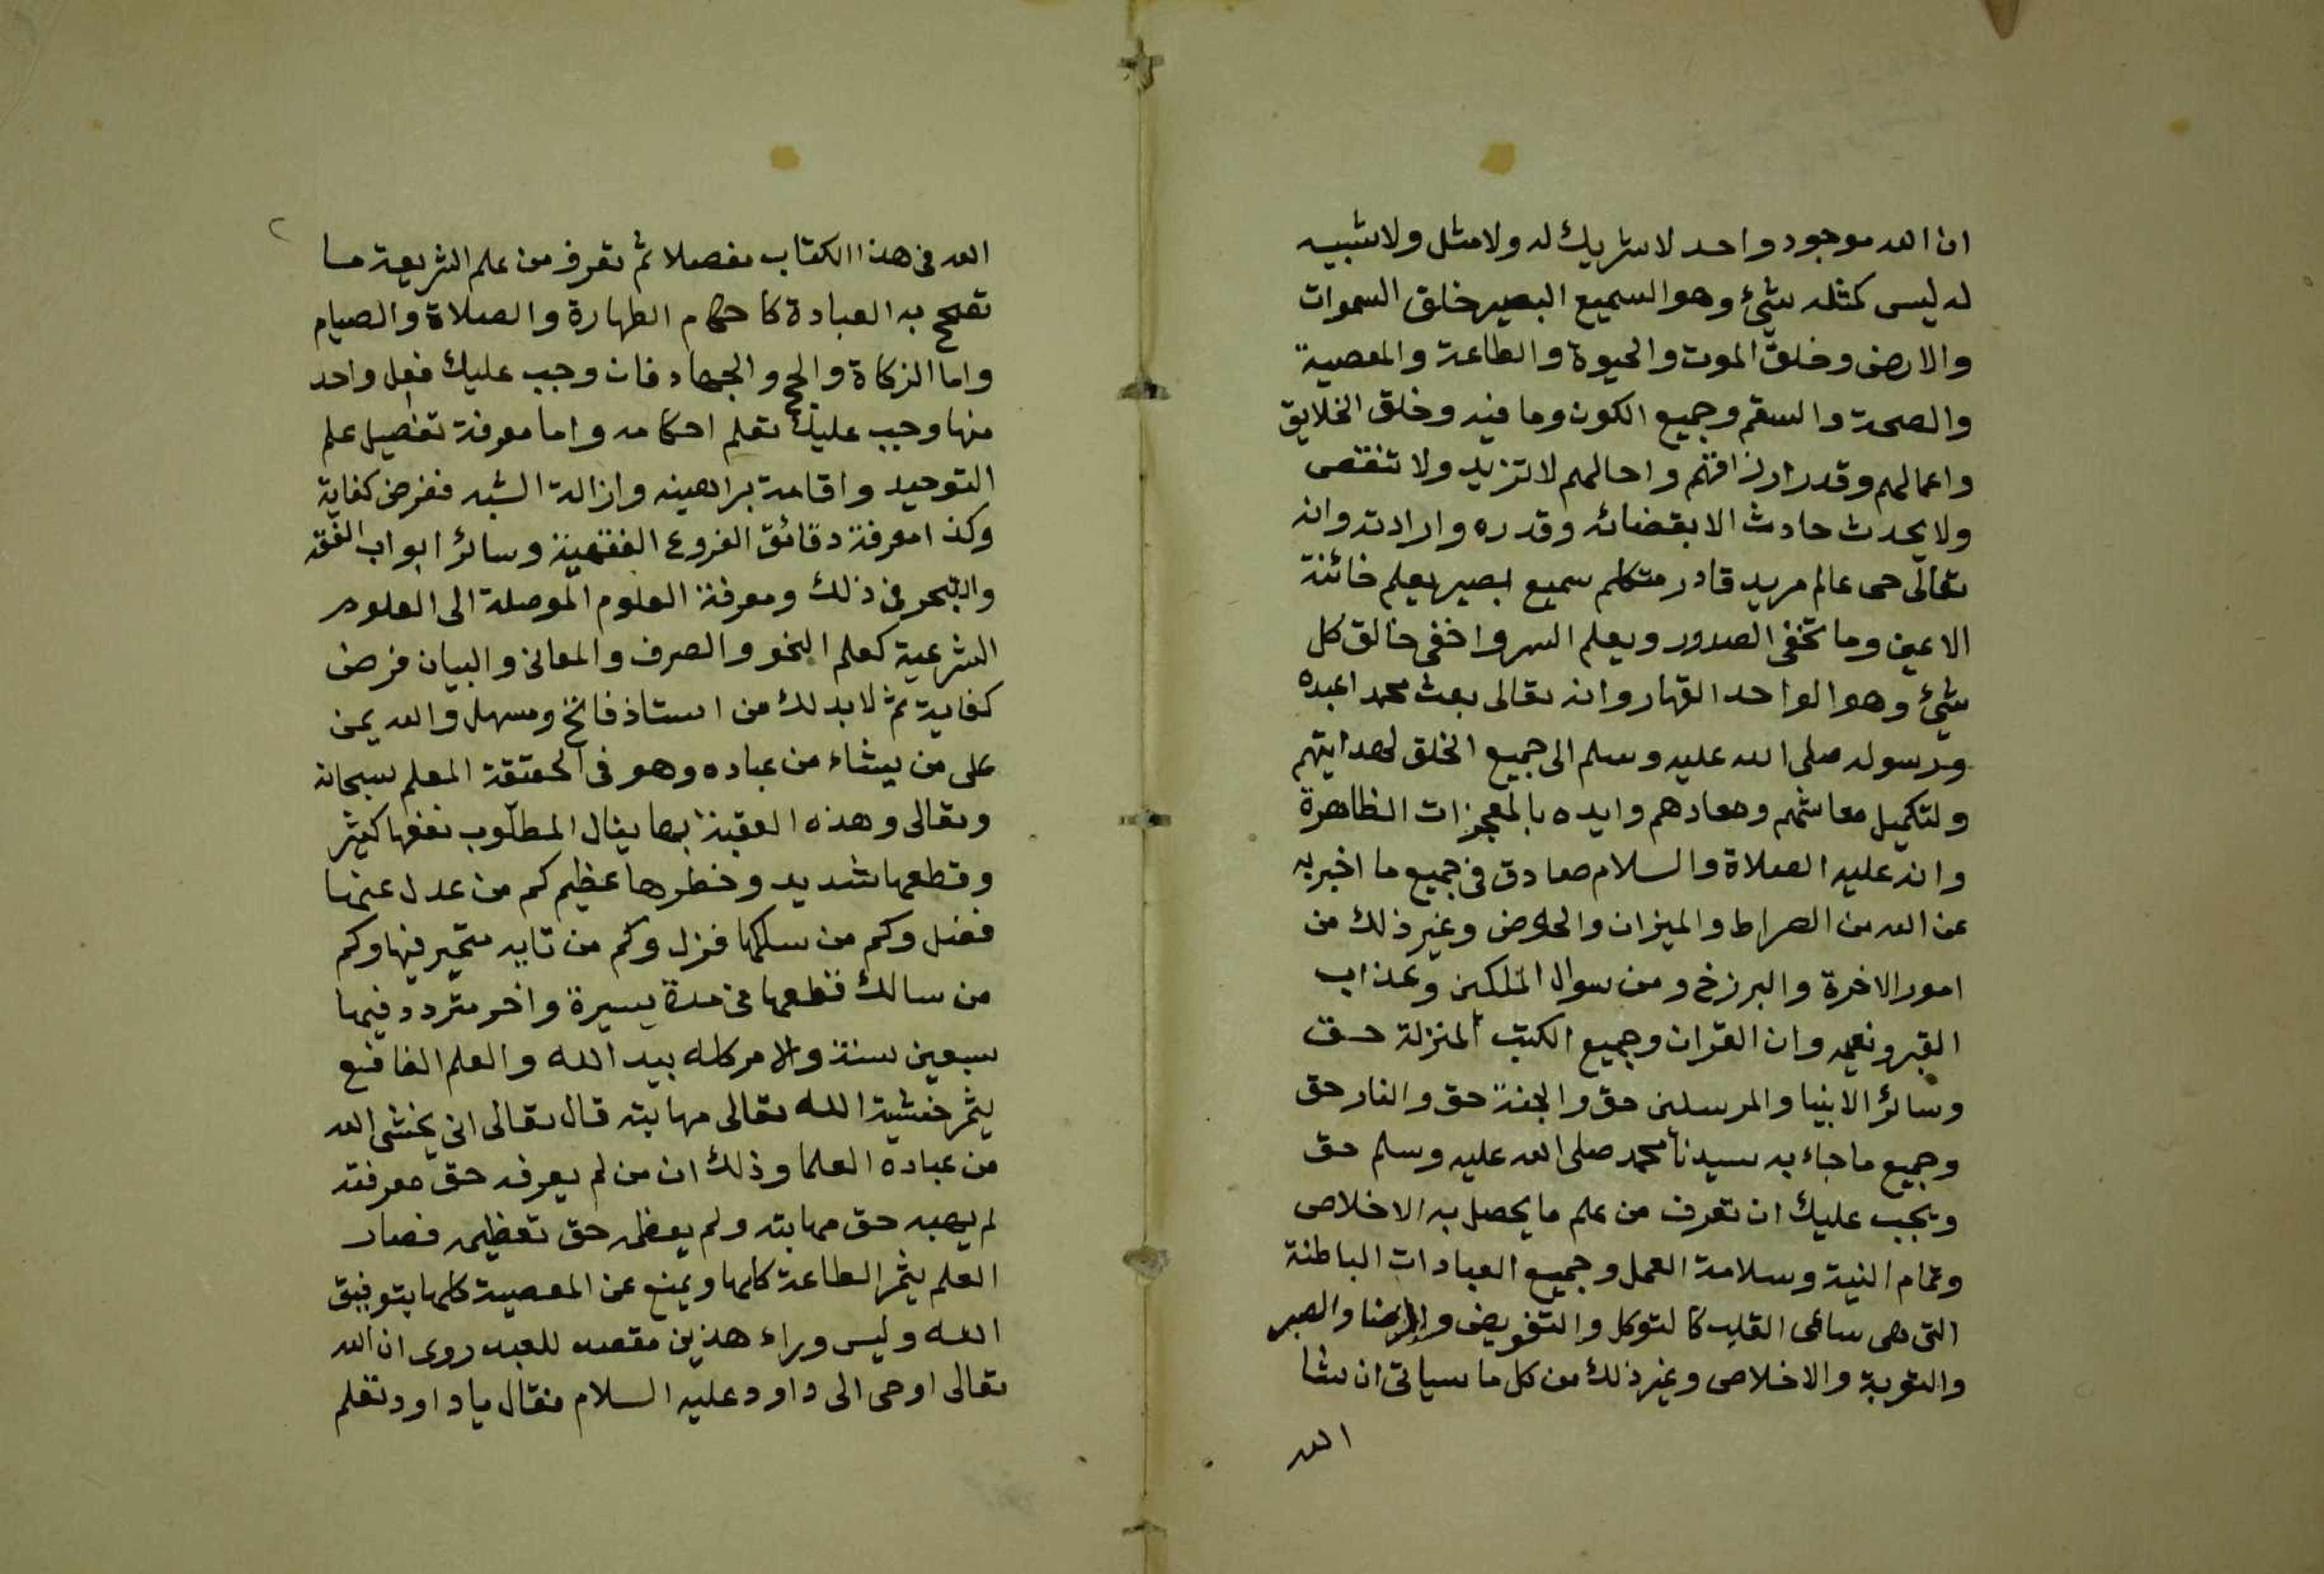 ان الله موجود واحد لا شريك له ولا مثل ولا شبيه
له ليس كمثله شيء وهو السميع البصير خلق السموات
والارض وخلق الموت والحيوة والطاعة والمعصية
والصحة والسقم وجميع الكون وما فيه وخلق الخلايق
واعمالهم وقدر ارزاقهم واجالهم لا تزيد ولا تنقص
ولا يحدث حادث الا بقضائه وقدره وارادته وانه
تعالى حى عالم مريد قادر متكلم سميع بصير يعلم خائنة
الاعين وما تخفى الصدور ويعلم السر واخفى خالق كل
شيء وهو الواحد القهار وانه تعالى بعث محمدا عبده
ورسوله صلى الله عليه وسلم الى جميع الخلق لهدايتهم
ولتكميل معاشهم ومعادهم وايده بالمعجزات الظاهرة
وانه عليه الصلاة والسلام صادق فى جميع ما اخبر به
عن الله من الصراط والميزان والحوض وغير ذلك من
امور الاخرة والبرزخ ومن سوال الملكين وعذاب
القبر ونعيمه وان القران وجميع الكتب المنزلة حق
وسائر الانبيا والمرسلين حق والجنة حق والنار حق
وجميع ما جاء به سيدنا محمد صلى الله عليه وسلم حق
ويجب عليك ان تعرف من علم ما يحصل به الاخلاص
وتمام النية وسلامة العمل وجميع العبادات الباطنة
التى هى ساعى القلب كالتوكل والتفويض والرضا والصبر
والتوبة والاخلاص وغير ذلك من كل ما سياتى ان شا
الله
٢
الله فى هذا الكتاب مفصلا ثم تعرف من علم الشريعة ما
تصح به العبادة كاحكام الطهارة والصلاة والصيام
واما الزكاة والحج والجهاد فان وجب عليك فعل واحد
منها وجب عليك تعلم احكامه واما معرفة تفصيل علم
التوحيد واقامة براهينه وازالة الشبه ففرض كفاية
وكذا معرفة دقائق الفروع الفقهية وسائر ابواب الفقه
والتبحر فى ذلك ومعرفة العلوم الموصلة الى العلوم
الشرعية كعلم النحو والصرف والمعانى والبيان فرض
كفاية ثم لا بد لك من استاذ فاتح ومسهل والله يمن
على من يشاء من عباده وهو فى الحقيقة المعلم سبحانه
وتعالى وهذه العقبة بها ينال المطلوب نفعها كثير
وقطعها شديد وخطرها عظيم كم من عدل عنها
فضل وكم من سلكها فزل وكم من تايه متحير فيها وكم
من سالك قطعها فى مدة يسيرة واخر متردد فيها
سبعين سنة والامر كله بيد الله والعلم النافع
يثمر خشية الله تعالى مهابته قال تعالى انى يخشى الله
من عباده العلما وذلك ان من لم يعرفه حق معرفته
لم يهبه حق مهابته ولم يعظمه حق تعظيمه فصار
العلم يثمر الطاعة كلها ويمنع عن المعصية كلها بتوفيق
الله وليس وراء هذين مقصد للعبد روى ان الله
تعالى اوحى الى داود عليه السلام فقال يا داود تعلم